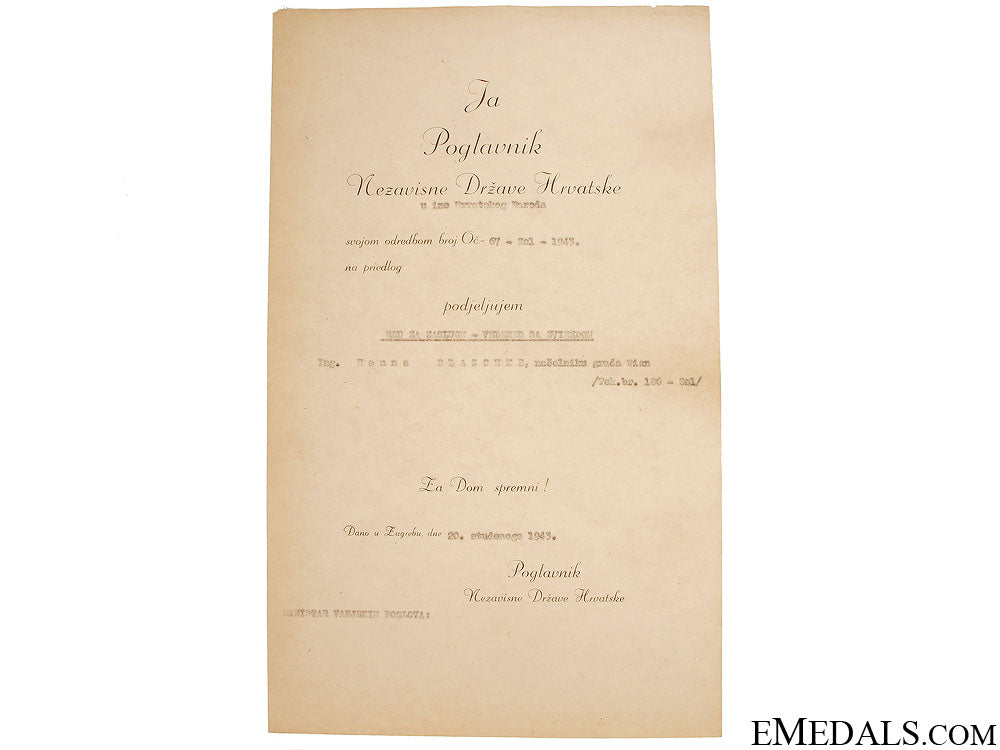 Ja
Poglavnik
Nezavisne Države Hrvatske
u ime Hrvatskog Naroda
svojom odredbom broj Oč.- 67 - Zal - 1943.
na priedlog
podjeljujem
RED ZA ZASLUGE - VELERED SA ZVIEZDOM
Ing. Hanns BLASCHKE, načelniku grada Wien
/Tek.br. 186 - Zal/
Za Dom spremni!
Dano u Zagrebu, dne 20. studenoga 1943.
Poglavnik
Nezavisne Države Hrvatske
MINISTAR VANJSKIH POSLOVA:
EMEDALS.COM